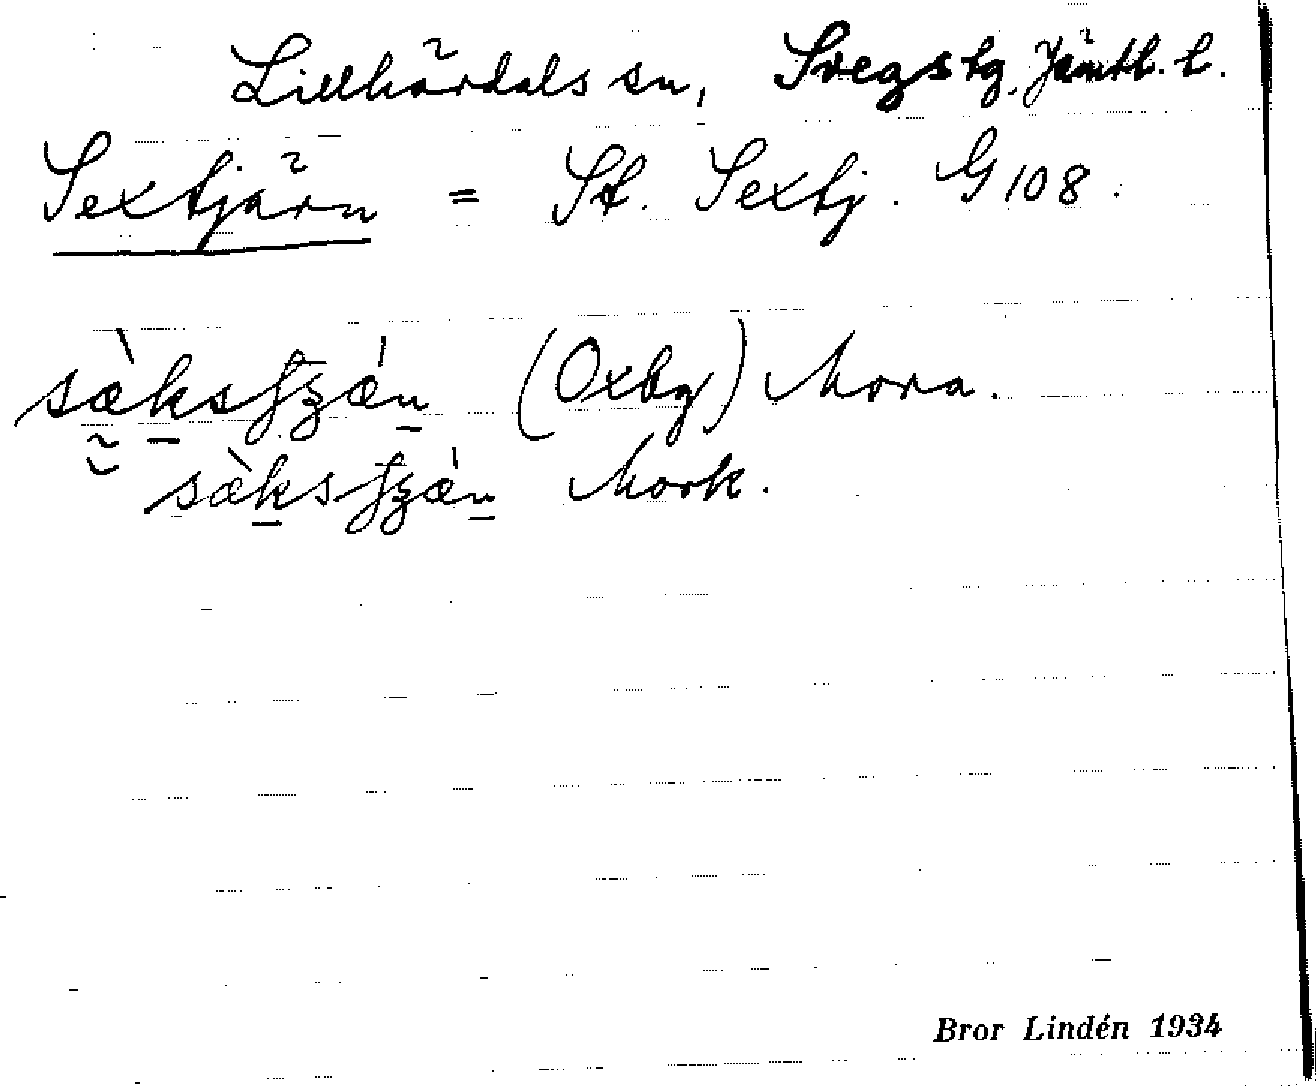 Lillhärdals sn, Svegs tg, Jämtl. l.
Sextjärn = St. Sextj. G 108.
(Oxbg) Mora.
Mork.
Bror Lindén 1934